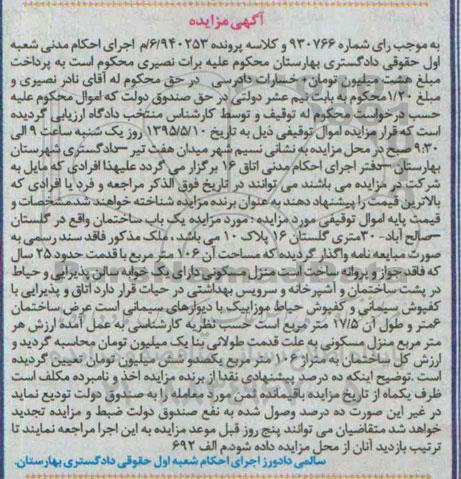 آگهی مزایده
به موجب رای شماره ۹۳۰۷۶۶ و کلاسه پرونده ۶/۹۴۰۲۵۳/م اجرای احکام مدنی شعبه
اول حقوقی دادگستری بهارستان محکوم علیه برات نصیری محکوم است به پرداخت
مبلغ هشت میلیون تومان + خسارات دادرسی در حق محکوم له آقای نادر نصیری و
مبلغ ۱/۲۰ محکوم به بابت نیم عشر دولتی در حق صندوق دولت که اموال محکوم علیه
حسب درخواست محکوم له توقیف و توسط کارشناس منتخب دادگاه ارزیابی گردیده
است که قرار مزایده اموال توقیفی ذیل به تاریخ ۱۳۹۵/۵/۱۰ روز یک شنبه ساعت ۹ الی
۹:۳۰ صبح در محل مزایده به نشانی نسیم شهر میدان هفت تیر – دادگستری شهرستان
بهارستان – دفتر اجرای احکام مدنی اتاق ۱۶ برگزار می گردد علیهذا افرادی که مایل به
شرکت در مزایده می باشند می توانند در تاریخ فوق الذکر مراجعه و فرد یا افرادی که
بالاترین قیمت را پیشنهاد دهند به عنوان برنده مزایده شناخته خواهند شد. مشخصات و
قیمت پایه اموال توقیفی مورد مزایده : مورد مزایده یک باب ساختمان واقع در گلستان
– صالح آباد – ۳۰ متری گلستان ۱۶ پلاک ۱۰ می باشد . ملک مذکور فاقد سند رسمی به
صورت مبایعه نامه واگذار گردیده که مساحت آن ۱۰۶ متر مربع با قدمت حدود ۲۵ سال
که فاقد جواز و پروانه ساخت است منزل مسکونی دارای یک خوابه سالن پذیرایی و حیاط
در پشت ساختمان و آشپزخانه و سرویس بهداشتی در حیات قرار دارد اتاق و پذیرایی با
کفپوش سیمانی و کفپوش حیاط موزاییک با دیوارهای سیمانی است عرض ساختمان
۶متر و طول آن ۱۷/۵ متر مربع است حسب نظریه کارشناسی به عمل آمده ارزش هر
متر مربع منزل مسکونی به علت قدمت طولانی بنا یک میلیون تومان محاسبه گردید و
ارزش کل ساختمان به متراژ ۱۰۶ متر مربع یکصدو شش میلیون تومان تعیین گردیده
است .توضیح اینکه ده درصد بهای پیشنهادی نقدا از برنده مزایده اخذ و نامبرده مکلف است
ظرف یکماه از تاریخ مزایده باقیمانده ثمن مورد معامله را به صندوق دولت تودیع نماید
در غیر این صورت ده درصد وصول شده به نفع صندوق دولت ضبط و مزایده تجدید
خواهد شد متقاضیان می توانند پنج روز قبل موعد مزایده به این اجرا مراجعه نمایند تا
ترتیب بازدید آنان از محل مزایده داده شود.م الف ۶۹۲
سالمی دادورز اجرای احکام شعبه اول حقوقی دادگستری بهارستان.